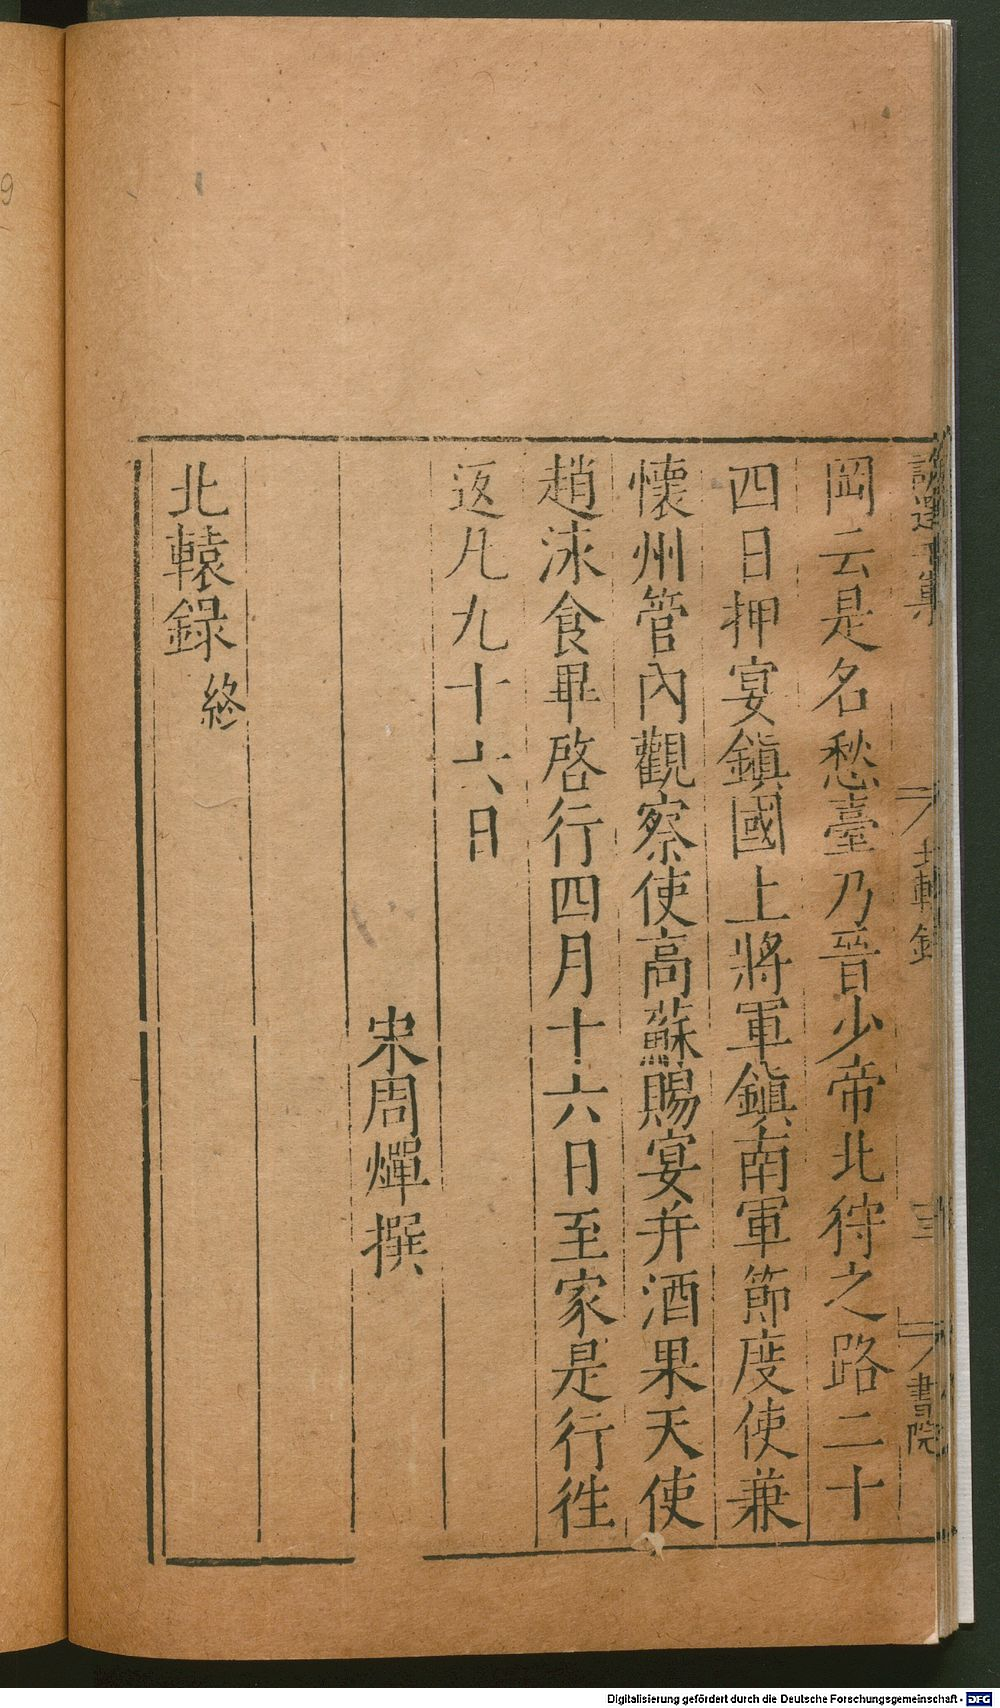 岡云是名愁臺乃晉少帝北狩之路二十
四日押宴鎮國上將軍鎮南軍節度使兼
懷州管內觀察使高蘇賜宴并酒果天使
趙泳食畢啓行四月十六日至家是行徃
返凡九十六日
宋周煇撰
北轅錄 終
書院
Digitalisierung gefördert durch die Deutsche Forschungsgemeinschaft - DFG